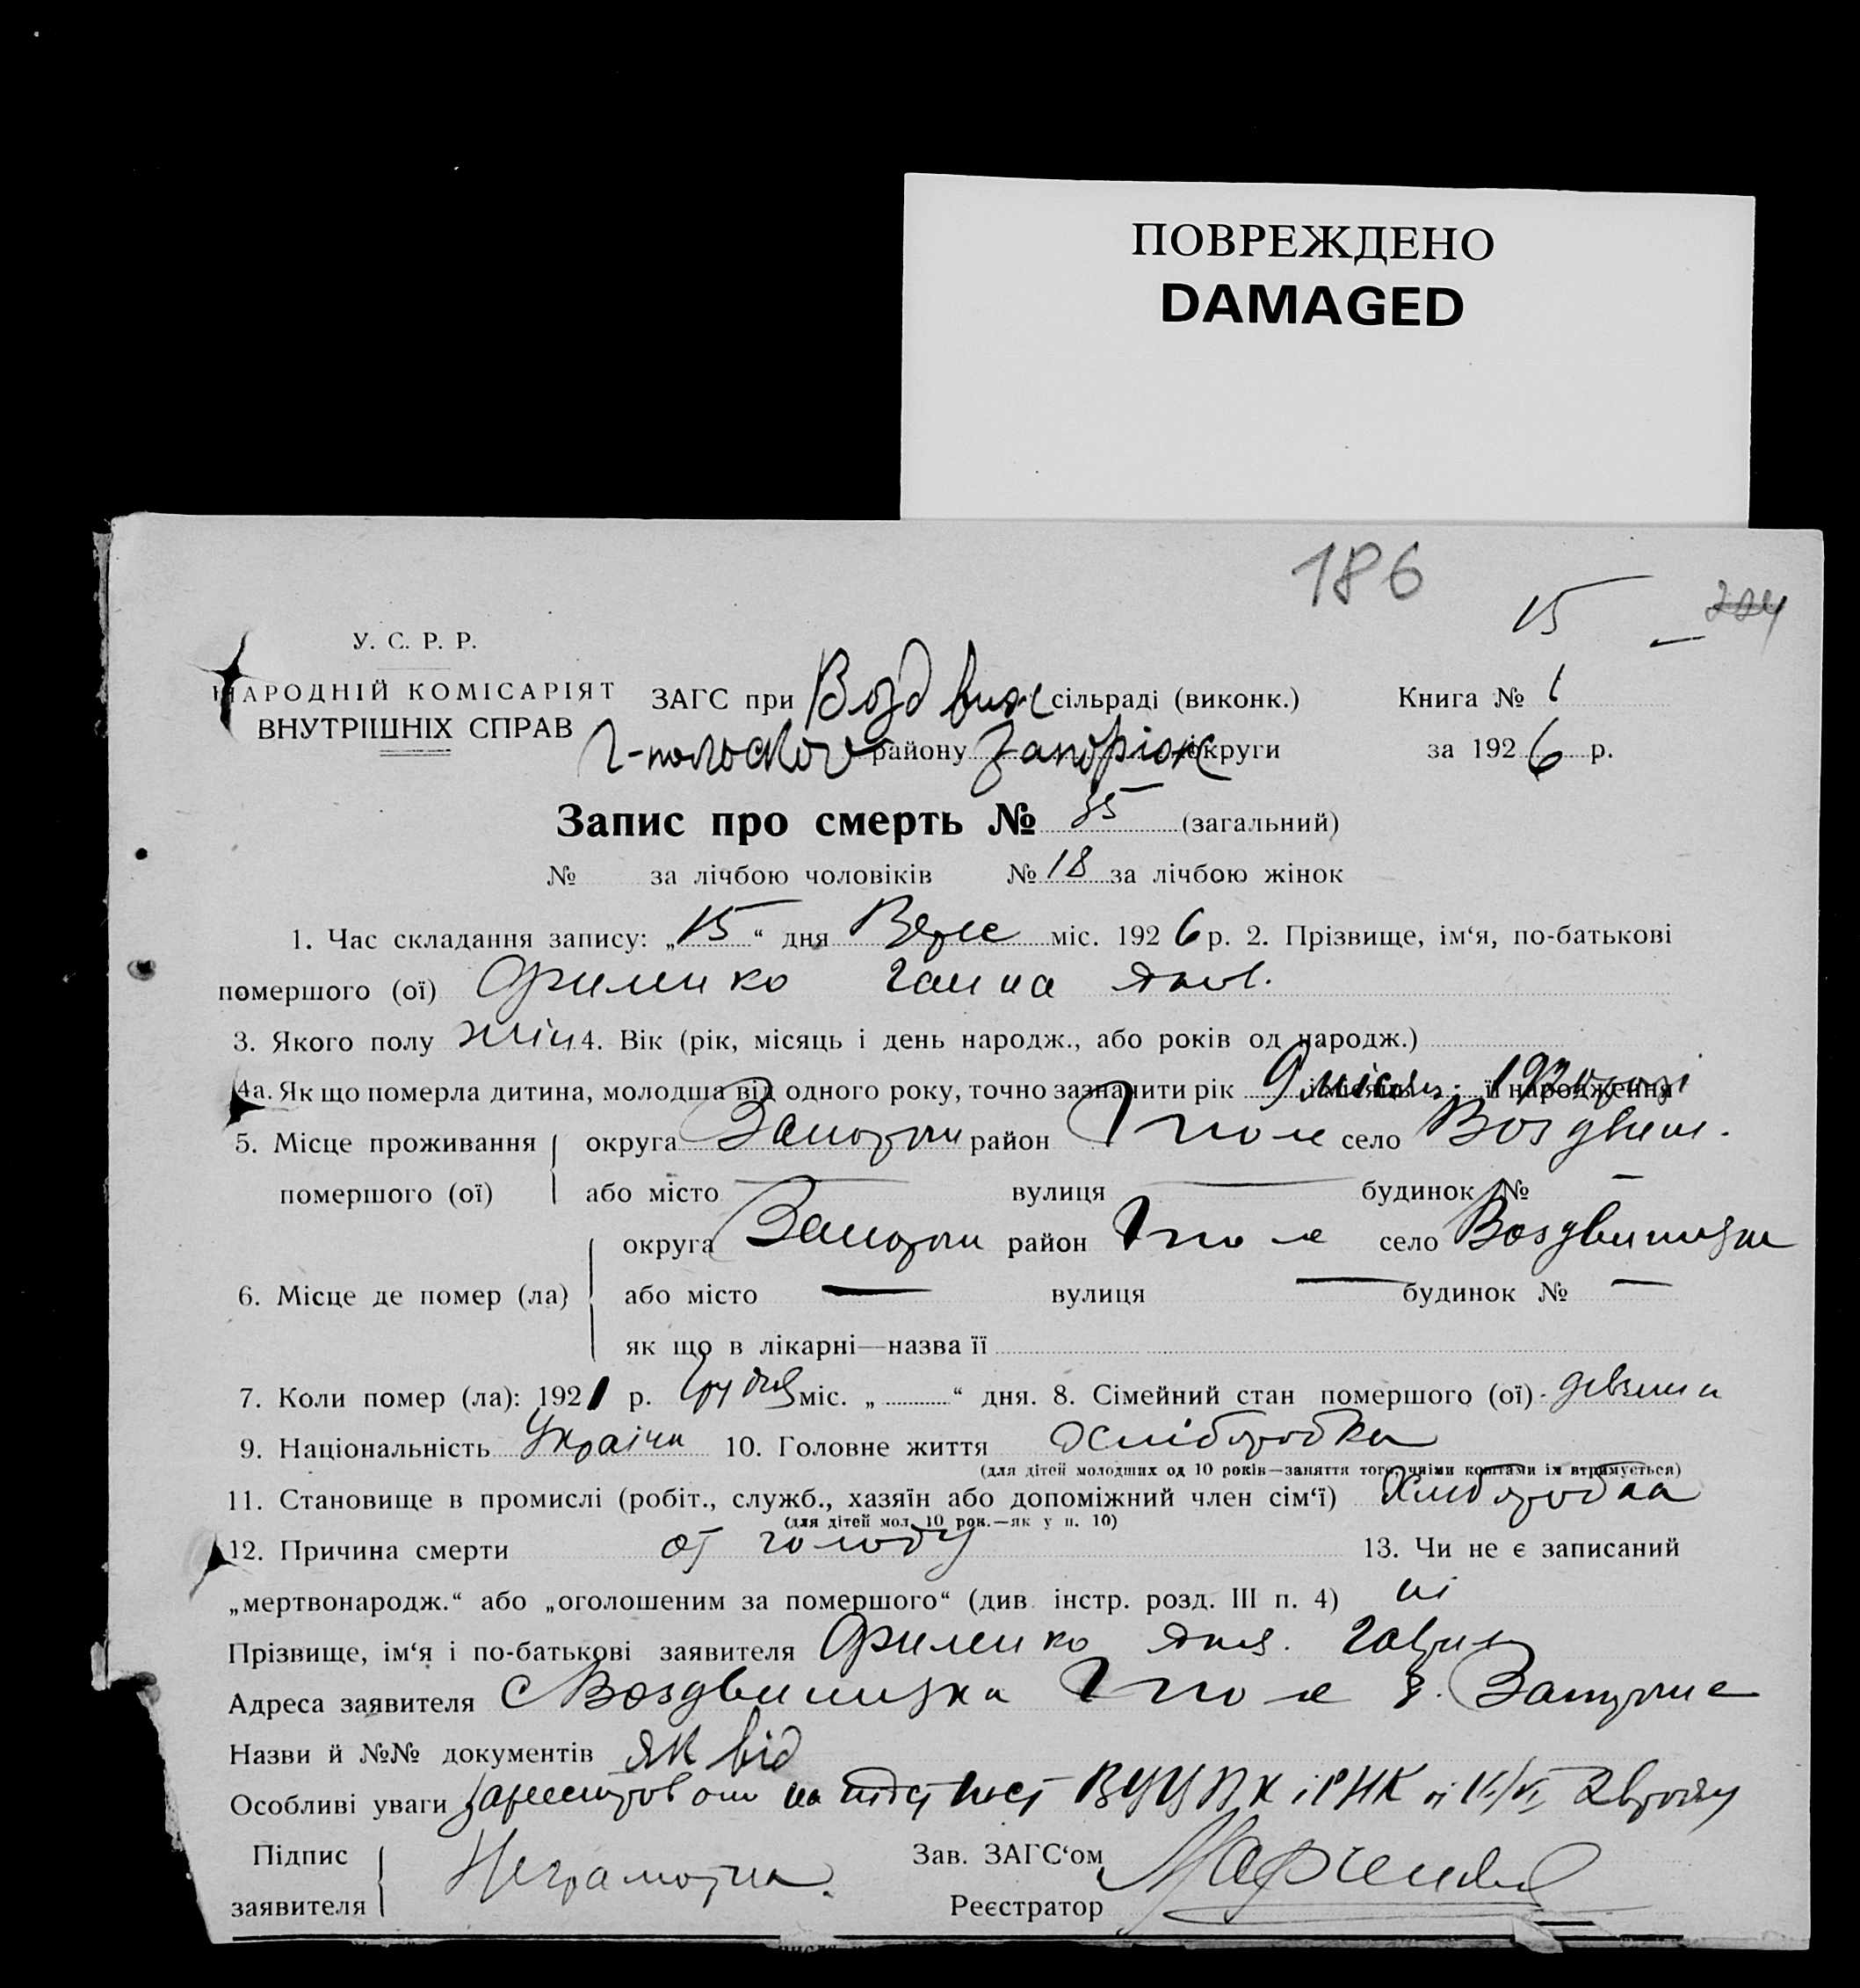 ПОВРЕЖДЕНО
DAMAGED
186
15
У. С. Р. Р.
НАРОДНІЙ КОМІСАРІЯТ
ВНУТРІШНІХ СПРАВ
ЗАГС при Воздвиж сільраді (виконк.) Книга № 1
Г-польского району Запоріж округи за 1926 р.
Запис про смерть № 35 (загальний)
№ за лічбою чоловіків № 18 за лічбою жінок
1. Час складання запису: „15“ дня Верес міс. 1926 р. 2. Прізвище, ім‘я, по-батькові
помершого (ої) Филенко Ганна Яков.
3. Якого полу жін 4. Вік (рік, місяць і день народж., або років од народж.)
4а. Як що померла дитина, молодша від одного року, точно зазначити рік 9 місяц. її народження
5. Місце проживання округа Запорож район Гпол село Воздвиж.
помершого (ої) або місто — вулиця — будинок № —
округа Запорож район Гпол село Воздвижизка
6. Місце де помер (ла) або місто — вулиця — будинок № —
як що в лікарні—назва її
7. Коли помер (ла): 1921 р. Грудня міс. „ “ дня. 8. Сімейний стан помершого (ої) девчина
9. Національність Українк 10. Головне життя Хліборобка
(для дітей молодших од 10 років—заняття того, чиїми коштами їх втримується)
11. Становище в промислі (робіт., служб., хазяїн або допоміжний член сім‘ї) Хліборобка
(для дітей мол. 10 рок.—як у п. 10)
12. Причина смерти от голоду 13. Чи не є записаний
„мертвонародж.“ або „оголошеним за помершого“ (див. інстр. розд. III п. 4) ні
Прізвище, ім‘я і по-батькові заявителя Филенко Яков. Гаврил
Адреса заявителя С Воздвижизка Гпол р. Запорож
Назви й №№ документів як від
Особливі уваги зареєстровано на підст пост ВУЦВК і РНК
Підпис Неграмотна. Зав. ЗАГС‘ом
заявителя Реєстратор